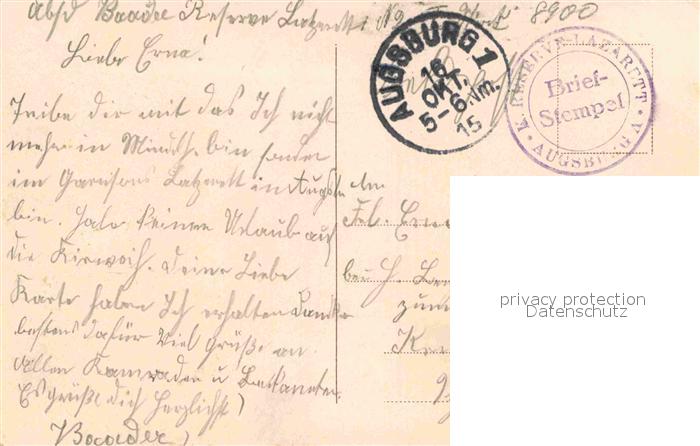 Absd Baader Reserve Lazarett Nº 8900
Liebe Erna!
AUGSBURG 1
16
OKT.
5-6.Nm.
15
K. RESERVE-LAZARETT
Brief-
Stempel
AUGSBURG V
Teibe dir mit das Ich nicht
mehr in Mindlh. bin sonder
im Garnisons Lazrett in Augsb.
bin. Habe keinen Urlaub auf
die Kirweih. Deine Liebe
Karte habe Ich erhalten Danke
bestens dafür Viel Grüße an
Allen Kamraden u Bekannten
Es grüßt dich Herzlichst
Baader
An
Frl. Erna
bei H.
zum
privacy protection
Datenschutz